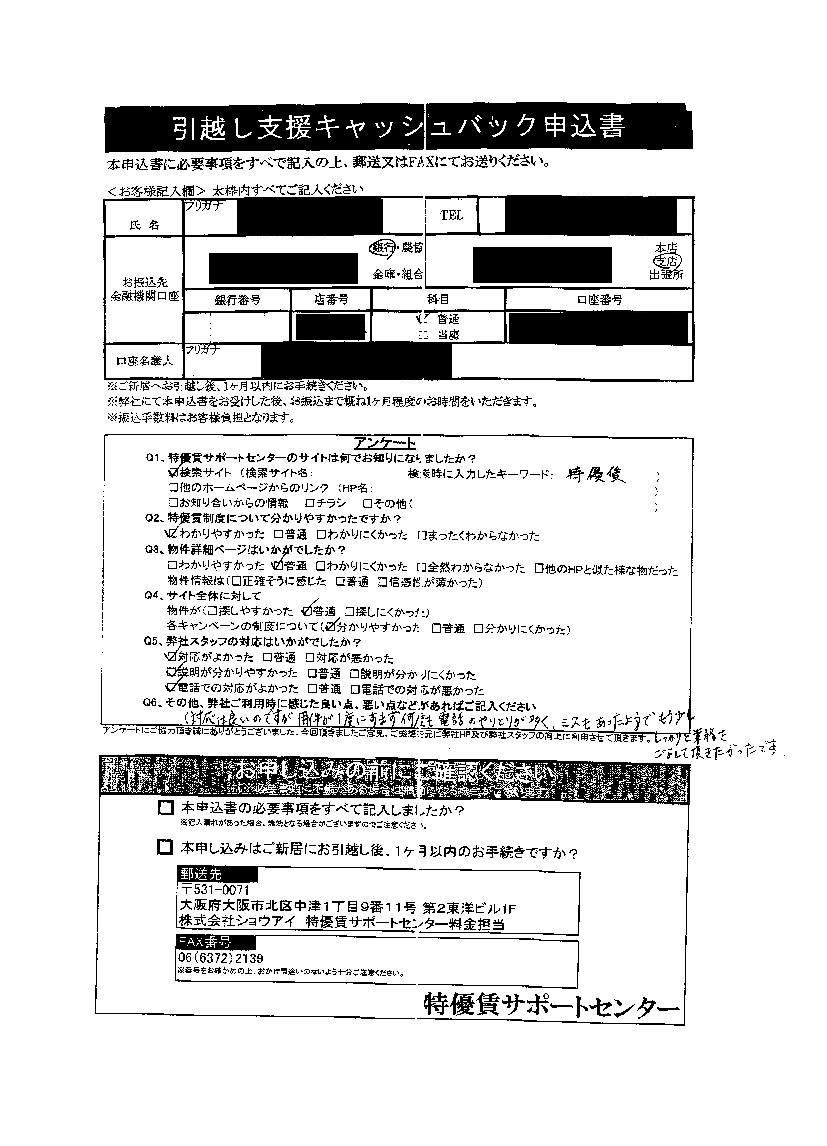 引越し支援キャッシュバック申込書
本申込書に必要事項をすべて記入の上、郵送又はFAXにてお送りください。
<お客様記入欄> 太枠内すべてご記入ください
フリガナ
氏 名 TEL
お振込先
金融機関口座
銀行・農協
金庫・組合
本店
支店
出張所
銀行番号 店番号 科目 口座番号
普通
当座
フリガナ
口座名義人
※ご新居へお引越し後、1ヶ月以内にお手続きください。
※弊社にて本申込書をお受けした後、お振込まで概ね1ヶ月程度のお時間をいただきます。
※振込手数料はお客様負担となります。
アンケート
Q1、特優賃サポートセンターのサイトは何でお知りになりましたか?
☑検索サイト (検索サイト名: 検索時に入力したキーワード: 特優賃 )
□他のホームページからのリンク (HP名: )
□お知り合いからの情報 □チラシ □その他( )
Q2、特優賃制度について分かりやすかったですか?
☑わかりやすかった □普通 □わかりにくかった □まったくわからなかった
Q3、物件詳細ページはいかがでしたか?
□わかりやすかった ☑普通 □わかりにくかった □全然わからなかった □他のHPと似た様な物だった
物件情報は(□正確そうに感じた □普通 □信憑性が薄かった)
Q4、サイト全体に対して
物件が(□探しやすかった ☑普通 □探しにくかった)
各キャンペーンの制度について(☑分かりやすかった □普通 □分かりにくかった)
Q5、弊社スタッフの対応はいかがでしたか?
☑対応がよかった □普通 □対応が悪かった
☑説明が分かりやすかった □普通 □説明が分かりにくかった
☑電話での対応がよかった □普通 □電話での対応が悪かった
Q6、その他、弊社ご利用時に感じた良い点、悪い点などがあればご記入ください
(対応は良いのですが 用件が1度にすまず何度も電話のやりとりが多く、ミスもあったようで もう少し
しっかりと業務を
こなして頂きたかったです
アンケートにご協力頂き誠にありがとうございました。今回頂きましたご意見、ご感想を元に弊社HP及び弊社スタッフの向上に利用させて頂きます。
お申し込みの前にご確認ください
□ 本申込書の必要事項をすべて記入しましたか?
※記入漏れがあった場合、無効となる場合がございますのでご注意ください。
□ 本申し込みはご新居にお引越し後、1ヶ月以内のお手続きですか?
郵送先
〒531-0071
大阪府大阪市北区中津1丁目9番11号 第2東洋ビル1F
株式会社ショウアイ 特優賃サポートセンター料金担当
FAX番号
06(6372)2139
※番号をお確かめの上、おかけ間違いのないよう十分ご注意ください。
特優賃サポートセンター